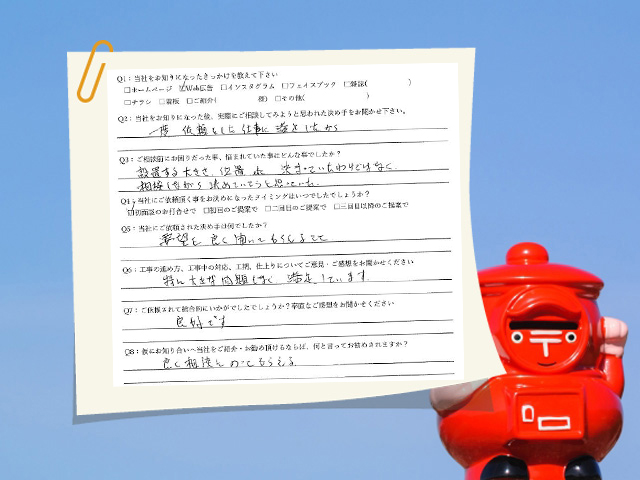 Q1：当社をお知りになったきっかけを教えて下さい
□ホームページ ☑Web広告 □インスタグラム □フェイスブック □雑誌( )
□チラシ □看板 □ご紹介( 様) □その他( )
Q2：当社をお知りになった後、実際にご相談してみようと思われた決め手をお聞かせ下さい。
一度 依頼をした仕事に満足したから
Q3：ご相談前にお困りだった事、悩まれていた事はどんな事でしたか？
設置する大きさ、位置 etc 決まっていたわけではなく、
相談しながら決めていこうと思っていた。
Q4：当社にご依頼頂く事をお決めになったタイミングはいつでしたでしょうか？
☑初回談のお打合せで □初回のご提案で □二回目のご提案で □三回目以降のご提案で
Q5：当社にご依頼された決め手は何でしたか？
要望を良く聞いてもらえること
Q6：工事の進め方、工事中の対応、工期、仕上りについてご意見・ご感想をお聞かせください
特に大きな問題もなく 満足しています。
Q7：ご依頼されて総合的にいかがでしたでしょうか？率直なご感想をお聞かせください
良好です
Q8：仮にお知り合いへ当社をご紹介・お勧め頂けるならば、何と言ってお勧めされますか？
良く相談にのってもらえる